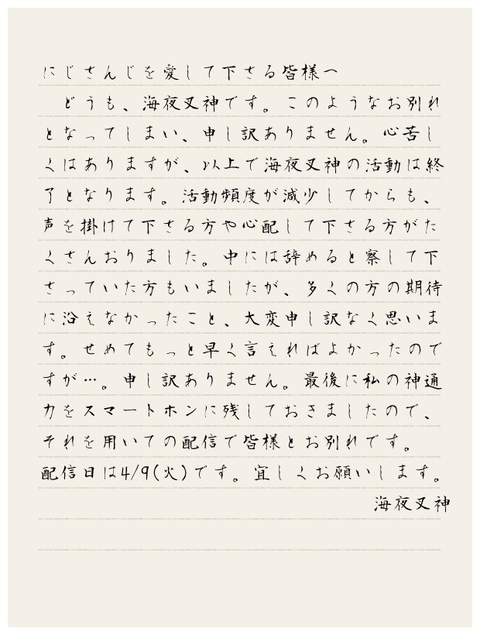 にじさんじを愛して下さる皆様へ
　どうも、海夜叉神です。このようなお別れ
となってしまい、申し訳ありません。心苦し
くはありますが、以上で海夜叉神の活動は終
了となります。活動頻度が減少してからも、
声を掛けて下さる方や心配して下さる方がた
くさんおりました。中には辞めると察して下
さっていた方もいましたが、多くの方の期待
に沿えなかったこと、大変申し訳なく思いま
す。せめてもっと早く言えればよかったので
すが…。申し訳ありません。最後に私の神通
力をスマートホンに残しておきましたので、
それを用いての配信で皆様とお別れです。
配信日は4/9(火)です。宜しくお願いします。
海夜叉神